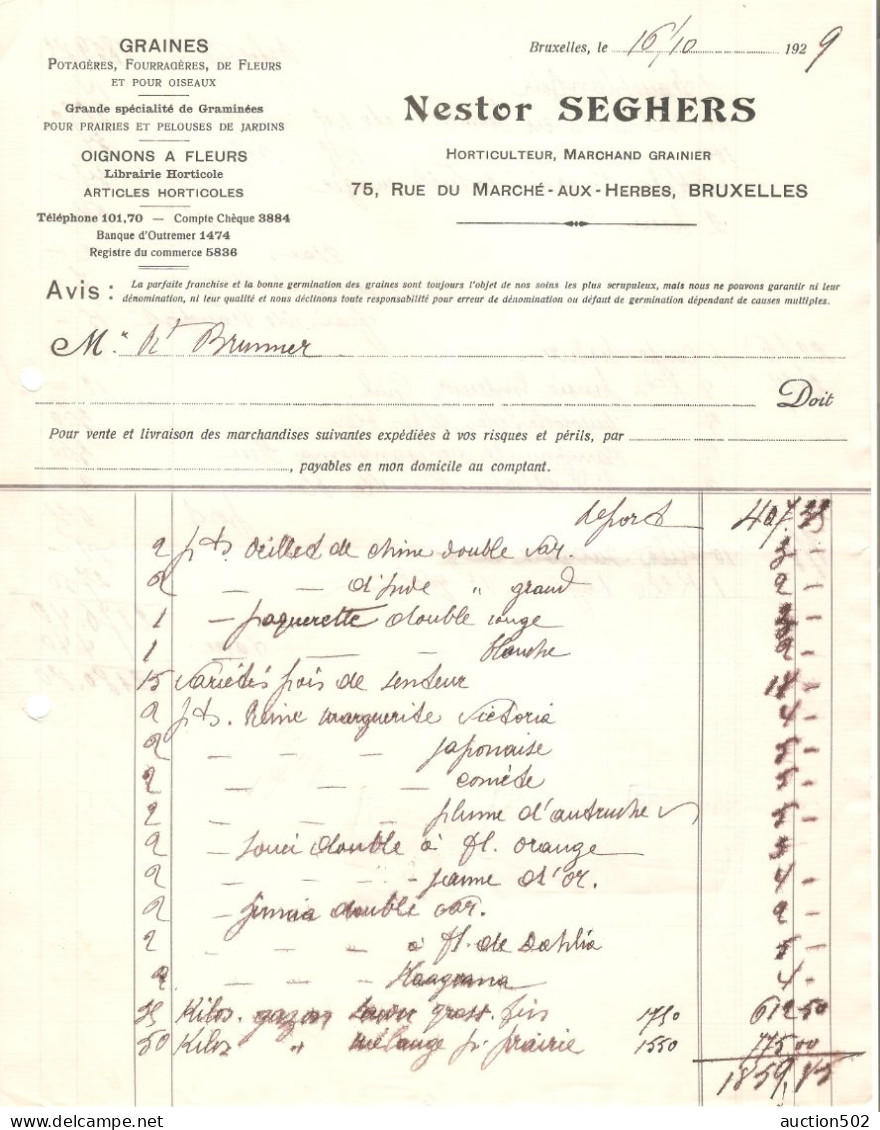 GRAINES
POTAGÈRES, FOURRAGÈRES, DE FLEURS
ET POUR OISEAUX
Grande spécialité de Graminées
POUR PRAIRIES ET PELOUSES DE JARDINS
OIGNONS A FLEURS
Librairie Horticole
ARTICLES HORTICOLES
Téléphone 101,70 — Compte Chèque 3884
Banque d'Outremer 1474
Registre du commerce 5836
Bruxelles, le 16/10 1929
Nestor SEGHERS
HORTICULTEUR, MARCHAND GRAINIER
75, RUE DU MARCHÉ-AUX-HERBES, BRUXELLES
Avis : La parfaite franchise et la bonne germination des graines sont toujours l'objet de nos soins les plus scrupuleux, mais nous ne pouvons garantir ni leur
dénomination, ni leur qualité et nous déclinons toute responsabilité pour erreur de dénomination ou défaut de germination dépendant de causes multiples.
M. Brunner
Doit
Pour vente et livraison des marchandises suivantes expédiées à vos risques et périls, par
, payables en mon domicile au comptant.
report
2 pts. œillet de chine double var. 3 -
2 — — d'inde " grand 2 -
1 — paquerette double rouge
1 — — — blanche 2 -
15 variétés pois de senteur
2 pts. Reine marguerite victoria 4 -
2 — — — japonaise 5 -
2 — — — comète 5 -
2 — — — plume d'autruche 5 -
2 — souci double à fl. orange
2 — — — jeanne d'or. 4 -
2 — zinnia double var. 2 -
2 — — — à fl. de Dahlia 5 -
2 — — — Haageana 4 -
35 Kilos. gazon fin 1750 612 50
50 Kilos " mélange pr. prairie 1550 775 00
1859,83
auction502